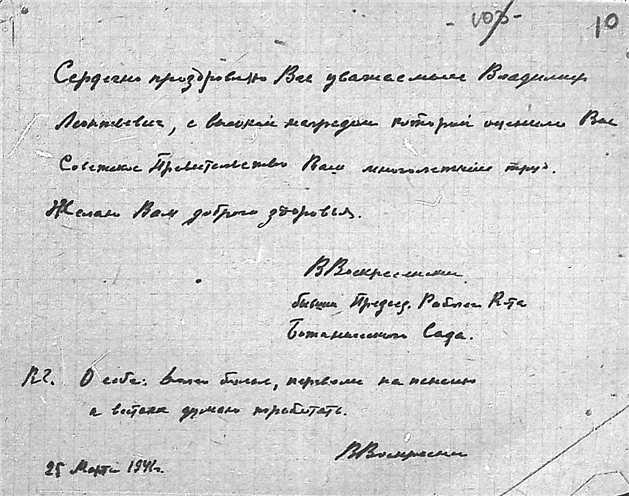 - 103 -
10
Сердечно проздравляю Вас уважаемый Владимир
Леонтьевич, с высокой наградой которой оценило Вас
Советское Правительство Ваш многолетний труд.
Желаю Вам доброго здоровья.
В Воскресенский
бывший Председ. Рабочк К-та
Ботанического Сада.
О себе: болел, перевели на пенсию
а всетаки думаю поработать.
В Воскресенский
25 Марта 1941г.